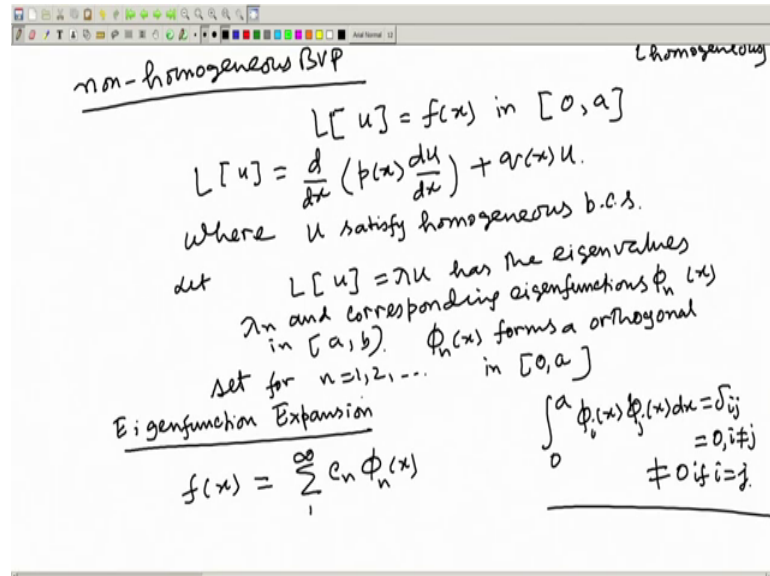 Arial Normal 12
(homogeneous
non-homogeneous BVP
L[u] = f(x) in [0,a]
L[u] = d/dx (p(x) du/dx) + q(x)u.
where u satisfy homogeneous b.c.s.
Let L[u] = λu has the eigenvalues
λn and corresponding eigenfunctions ϕn(x)
in [a,b]. ϕn(x) forms a orthogonal
set for n=1,2,... in [0,a]
Eigenfunction Expansion
f(x) = ∑_1^∞ cn ϕn(x)
∫_0^a ϕi(x) ϕj(x)dx = δij
= 0, i≠j
≠ 0 if i=j.